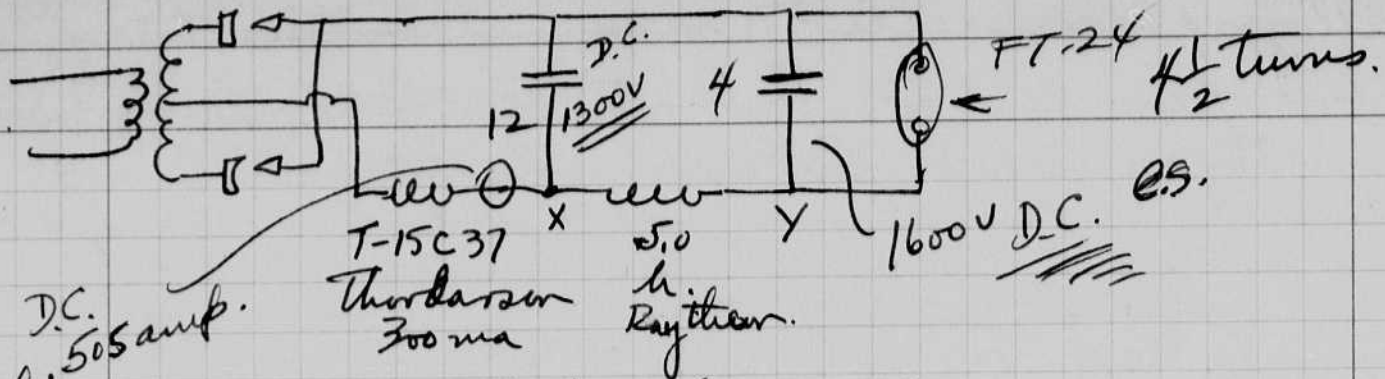 D.C.
12 1300V
4
FT-24 4 1/2 turns.
X
Y
e.s.
1600V D.C.
T-15C37
Thordarson
300 ma
5.0
h.
Raytheon.
D.C.
.505 amp.